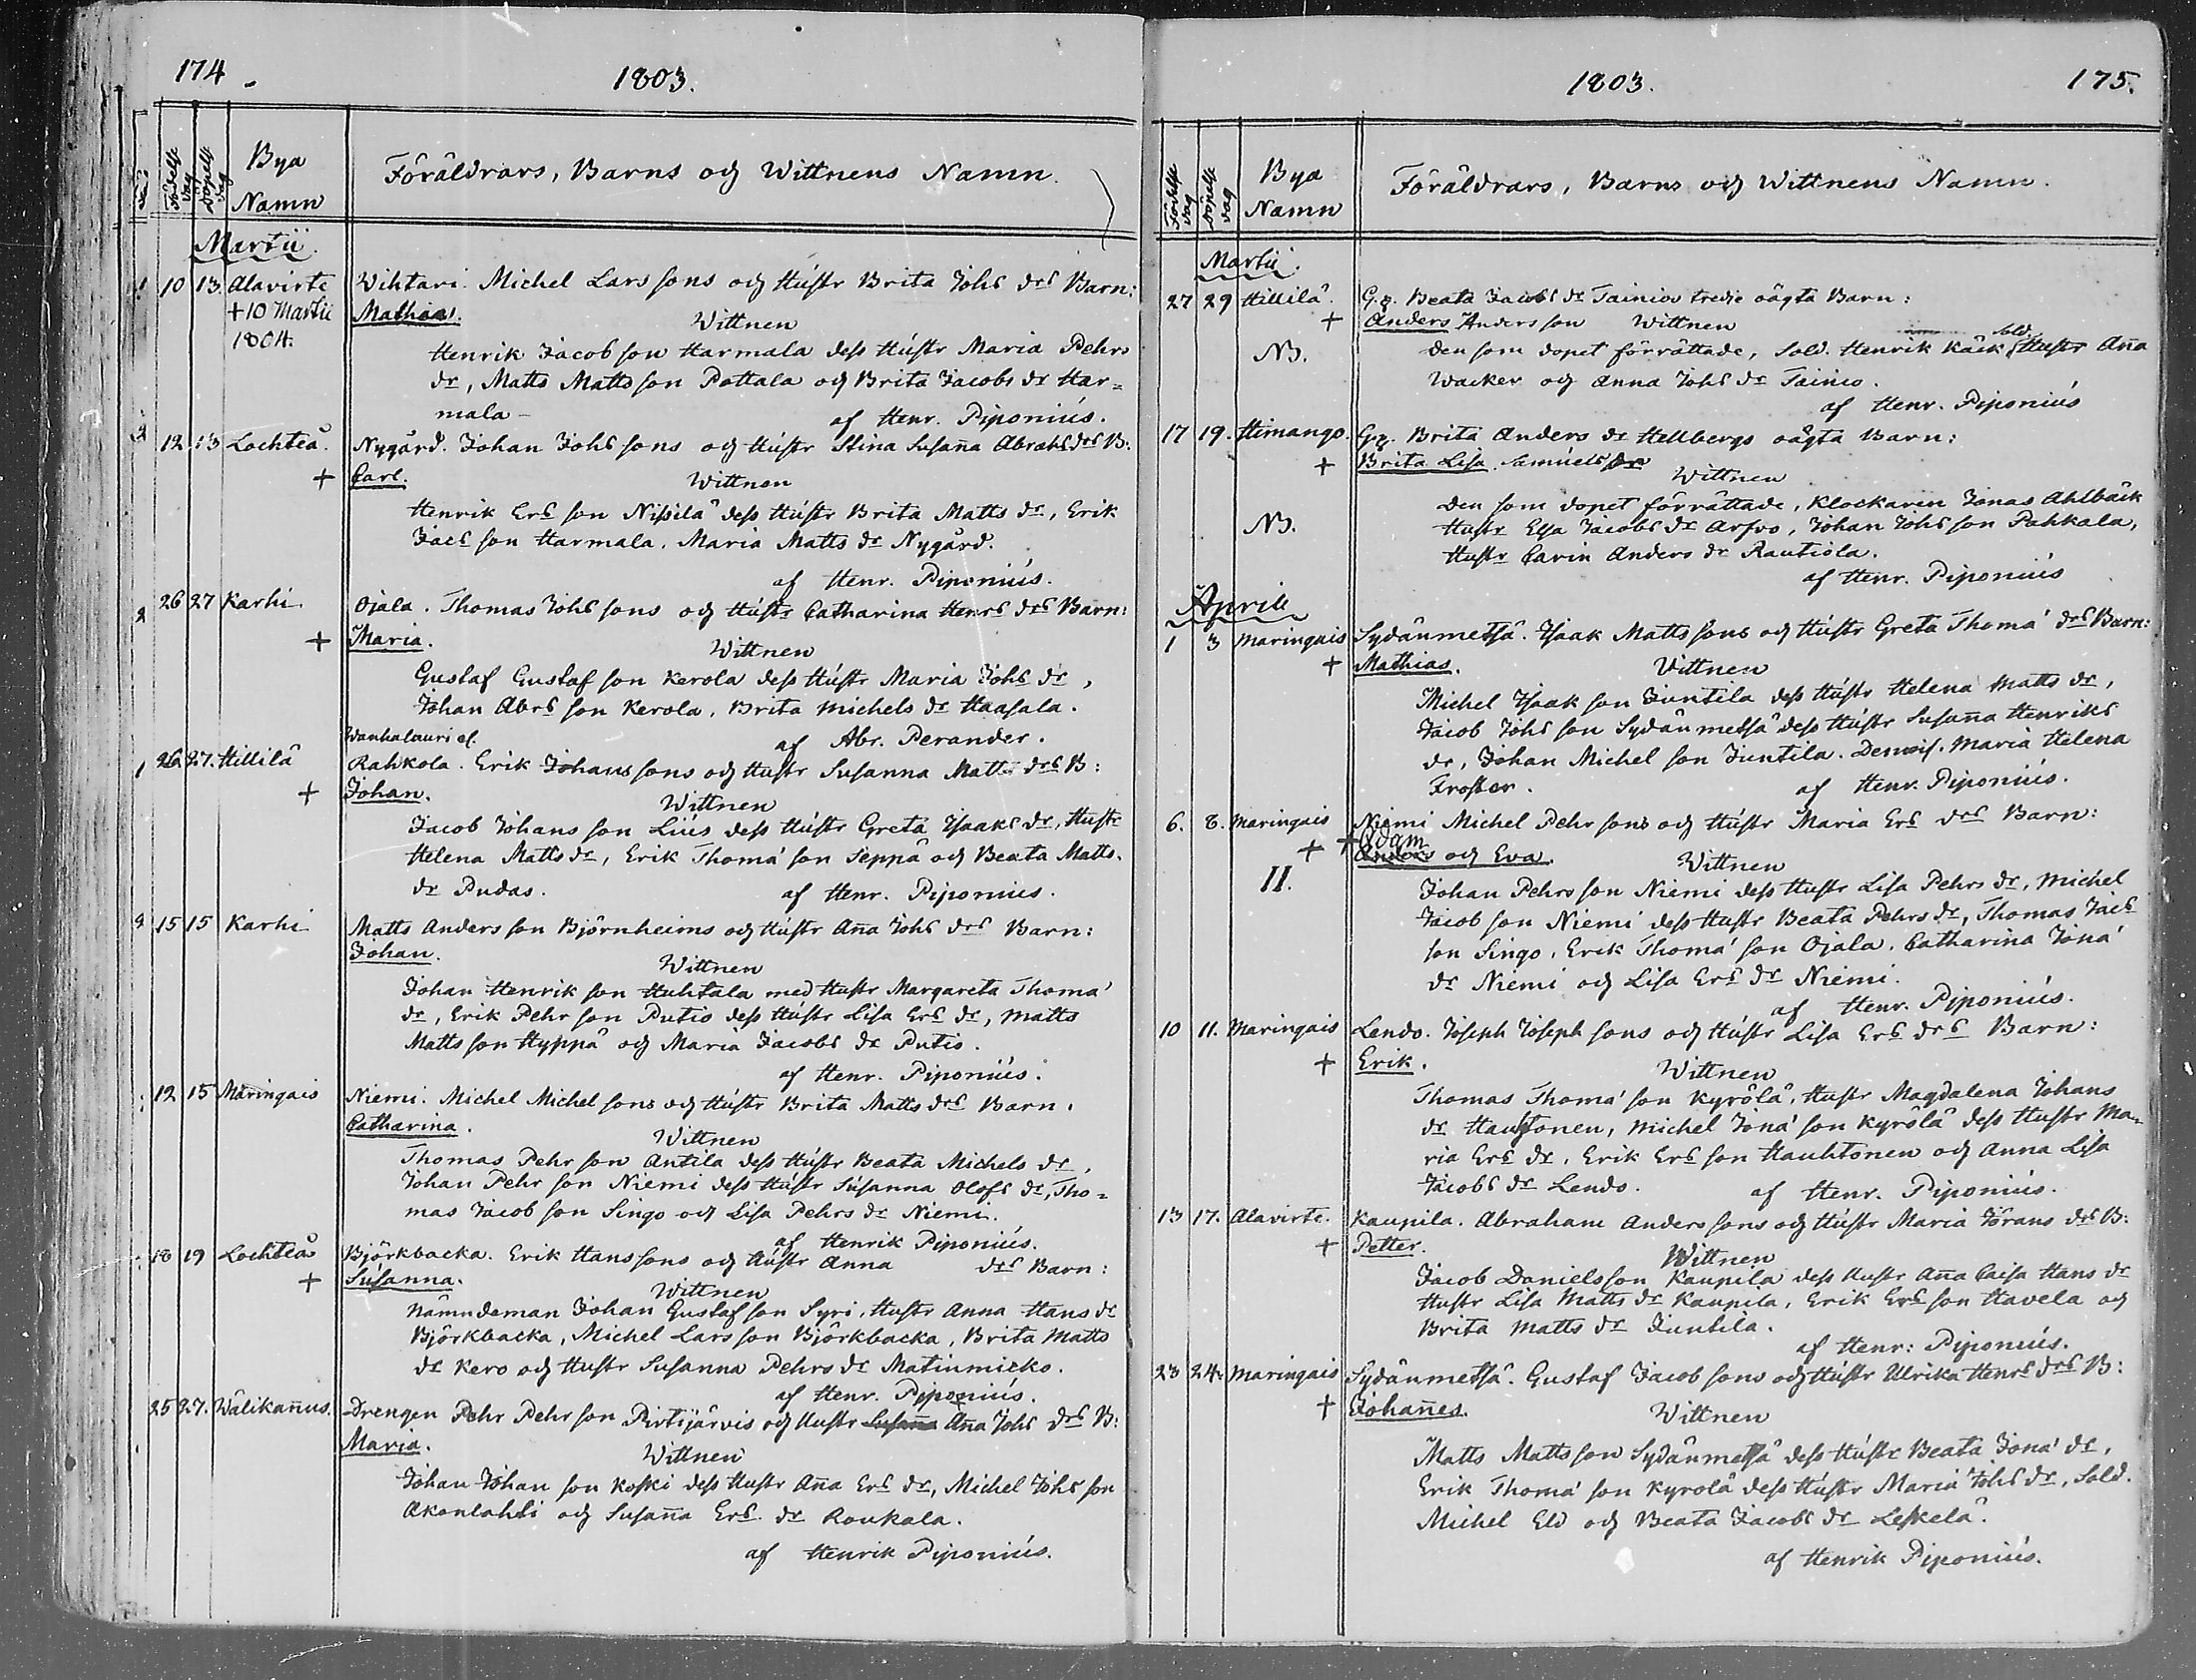 174
1803.
Födelse dag
Döpelse dag
Bya Namn
Föräldrars, Barns och Wittnens Namn.
Martii.
1 10 13. Alavirte Wihtari. Michel Lars sons och Hustr Brita Johs drs Barn:
+ 10 Martii Mathias. Wittnen
1804. Henrik Jacob son Harmala dess Hustr Maria Pehrs
dr, Matts Matts son Pottala och Brita Jacobs dr Har=
mala - af Henr. Piponius.
2 12 13 Lochteå. Nygård. Johan Johs sons och Hustr Stina Susaña Abrahs drs B:
+ Carl. Wittnen
Henrik Ers son Nissilä dess Hustr Brita Matts dr, Erik
Jacs son Harmala, Maria Matts dr Nygård.
af Henr. Piponius.
2 26 27 Karhi Ojala. Thomas Johs sons och Hustr Catharina Henrs drs Barn:
+ Maria. Wittnen
Gustaf Gustaf son Kerola dess Hustr Maria Johs dr,
Johan Abrs son Kerola, Brita Michels dr Haasala.
Wanhalauri el. af Abr. Perander.
1 26 27. Hillilä Rahkola. Erik Johans sons och Hustr Susanna Matts drs B:
+ Johan. Wittnen
Jacob Johans son Lius dess Hustr Greta Isaaks dr, Hustr
Helena Matts dr, Erik Thomæ son Seppä och Beata Matts
dr Pudas. af Henr. Piponius.
2 15 15 Karhi Matts Anders son Björnheims och Hustr Aña Johs drs Barn:
Johan. Wittnen
Johan Henrik son Huhtala med Hustr Margareta Thoma
dr, Erik Pehr son Putio dess Hustr Lisa Ers dr, Matts
Matts son Hyppä och Maria Jacobs dr Putio.
af Henr. Piponius.
12 15 Maringais Niemi. Michel Michel sons och Hustr Brita Matts drs Barn.
Catharina. Wittnen
Thomas Pehr son Antila dess Hustr Beata Michels dr,
Johan Pehr son Niemi dess Hustr Susanna Olofs dr, Tho=
mas Jacob son Singo och Lisa Pehrs dr Niemi.
af Henrik Piponius.
18 19 Lochteå Björkbacka. Erik Hans sons och Hustr Anna drs Barn:
+ Susanna. Wittnen
Nämndeman Johan Gustaf son Syri, Hustr Anna Hans dr
Björkbacka, Michel Lars son Björkbacka, Brita Matts
dr Kero och Hustr Susanna Pehrs dr Matinmicko.
af Henr. Piponius.
25 27. Wälikañus. Drengen Pehr Pehr son Pirtijärvis och Hustr Susaña Aña Johs drs B:
Maria. Wittnen
Johan Johan son Koski dess Hustr Aña Ers dr, Michel Johs son
Akonlahti och Susaña Ers dr Roukala.
af Henrik Piponius.
1803.
175.
Födelse dag
Döpelse dag
Bya Namn
Föräldrars, Barns och Wittnens Namn.
Martii.
27 29 Hillilä. G.p. Beata Jacobs dr Tainios tredie oägta Barn:
+ Anders Anders son Wittnen
NB. den som dopet förrättade, Sold. Henrik Käck, Sold. Hustr Aña
Wacker och Anna Johs dr Tainio.
af Henr. Piponius
17 19. Himango. G.p. Brita Anders dr Hellbergs oägta Barn:
+ Brita Lisa. Samuels dr
Wittnen
den som dopet förrättade, Klockaren Jonas Ahlbäck
NB. Hustr Elsa Jacobs dr Arfvo, Johan Johs son Pahkala,
Hustr Carin Anders dr Rautiola.
af Henr. Piponius
Aprill
1 3 Maringais Sydänmetsä. Isaak Matts sons och Hustr Greta Thoma drs Barn:
+ Mathias. Wittnen
Michel Isaak son Juntila dess Hustr Helena Matts dr,
Jacob Johs son Sydänmetsä dess Hustr Susaña Henriks
dr, Johan Michel son Juntila. Demois. Maria Helena
Froster. af Henr. Piponius.
6. 8. Maringais Niemi Michel Pehr sons och Hustr Maria Ers drs Barn:
+ + Adam
Anders och Eva. Wittnen
II. Johan Pehrs son Niemi dess Hustr Lisa Pehrs dr, Michel
Jacob son Niemi dess Hustr Beata Pehrs dr, Thomas Jacs
son Singo, Erik Thoma son Ojala, Catharina Jona
dr Niemi och Lisa Ers dr Niemi.
af Henr. Piponius.
10 11. Maringais Lendo. Joseph Joseph sons och Hustr Lisa Ers drs Barn:
+ Erik. Wittnen
Thomas Thoma son Kyrölä, Hustr Magdalena Johans
dr Hauhtonen, Michel Jona son Kyrölä dess Hustr Ma=
ria Ers dr, Erik Ers son Hauhtonen och Anna Lisa
Jacobs dr Lendo. af Henr. Piponius.
13 17. Alavirte. Kaupila. Abraham Anders sons och Hustr Maria Jörans drs B:
+ Petter. Wittnen
Jacob Daniels son Kaupila dess Hustr Aña Caisa Hans dr
Hustr Lisa Matts dr Kaupila, Erik Ers son Havela och
Brita Matts dr Juntila.
af Henr: Piponius.
23 24. Maringais Sydänmetsä. Gustaf Jacob sons och Hustr Ulrika Henrs drs B:
+ Johañes. Wittnen
Matts Matts son Sydänmetsä dess Hustr Beata Jona dr,
Erik Thoma son Kyrölä dess Hustr Maria Johs dr, Sold.
Michel Eld och Beata Jacobs dr Leskelä.
af Henrik Piponius.